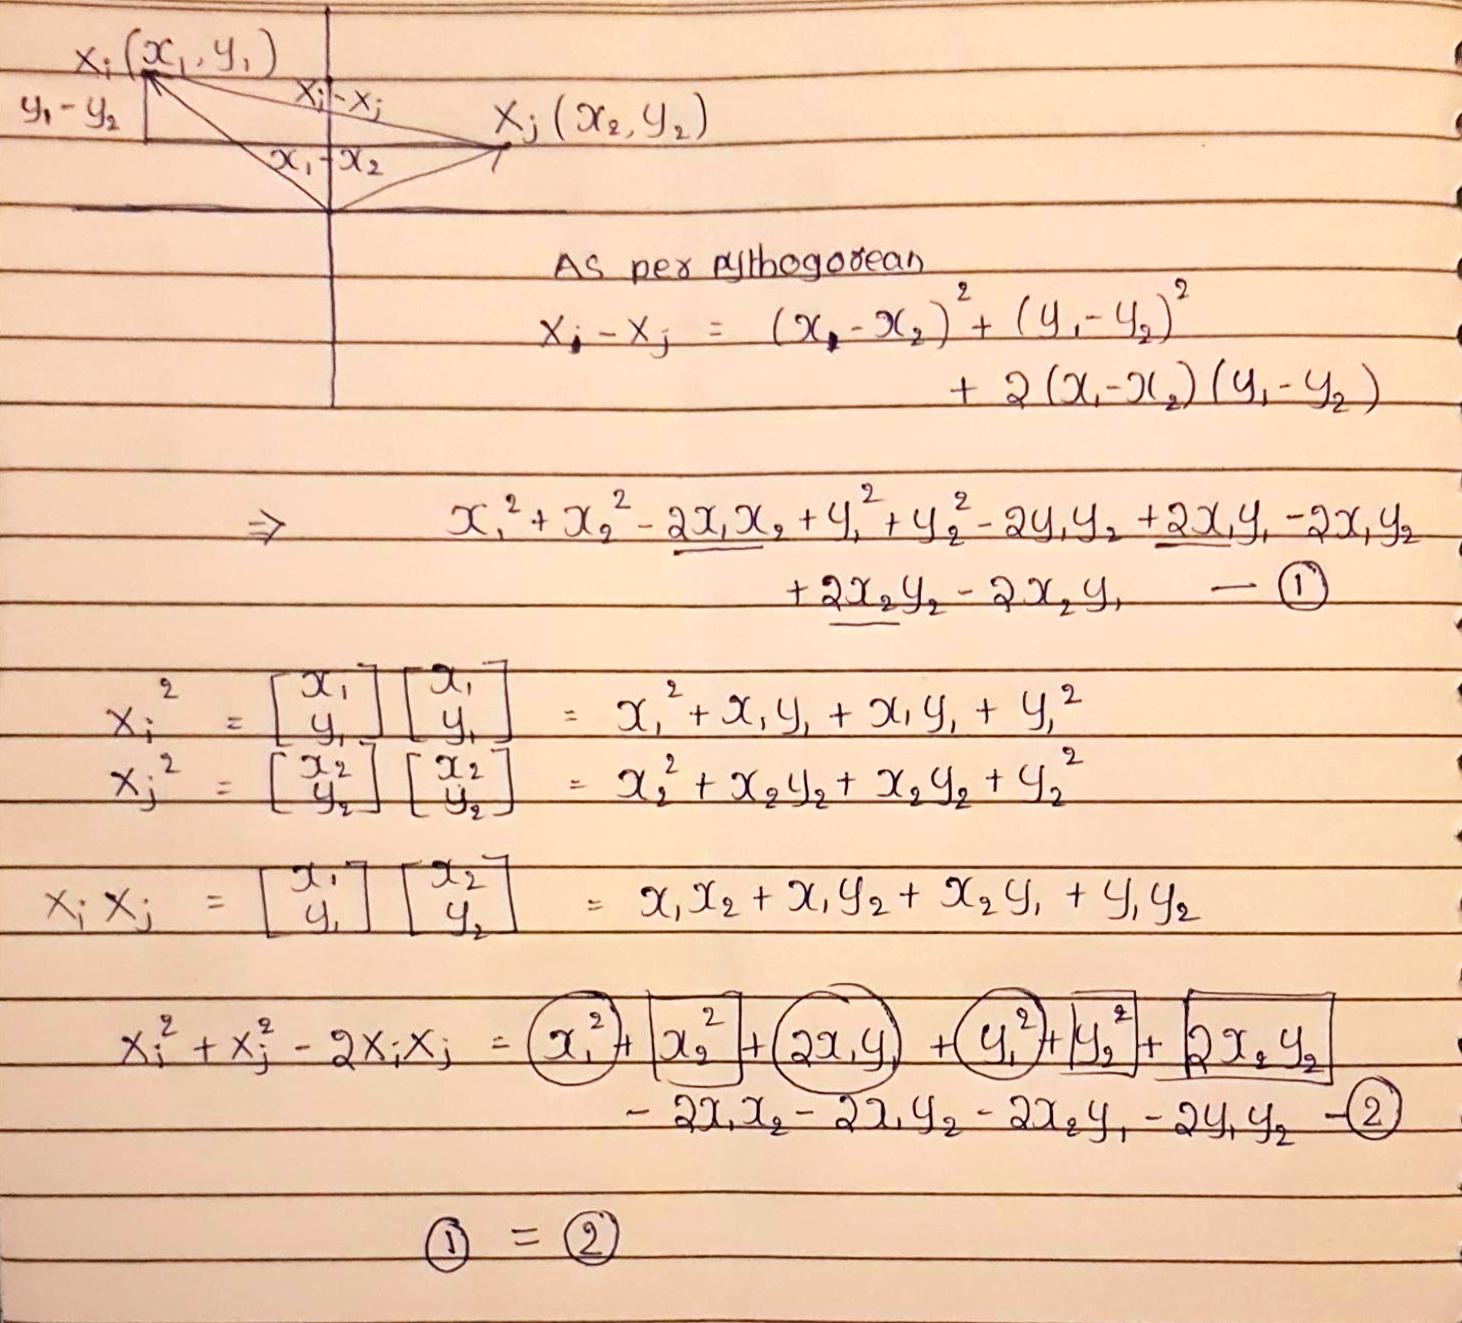 Xi (x₁, y₁)
Xi - Xj
y₁ - y₂
Xj (x₂, y₂)
x₁ - x₂
As per pythogorean
Xi - Xj = (x₁ - x₂)² + (y₁ - y₂)²
+ 2(x₁ - x₂)(y₁ - y₂)
⇒ x₁² + x₂² - 2x₁x₂ + y₁² + y₂² - 2y₁y₂ + 2x₁y₁ - 2x₁y₂
+ 2x₂y₂ - 2x₂y₁ — ①
Xi² = [x₁ y₁] [x₁ y₁] = x₁² + x₁y₁ + x₁y₁ + y₁²
Xj² = [x₂ y₂] [x₂ y₂] = x₂² + x₂y₂ + x₂y₂ + y₂²
Xi Xj = [x₁ y₁] [x₂ y₂] = x₁x₂ + x₁y₂ + x₂y₁ + y₁y₂
Xi² + Xj² - 2XiXj = x₁² + x₂² + 2x₁y₁ + y₁² + y₂² + 2x₂y₂
- 2x₁x₂ - 2x₁y₂ - 2x₂y₁ - 2y₁y₂ - ②
① = ②